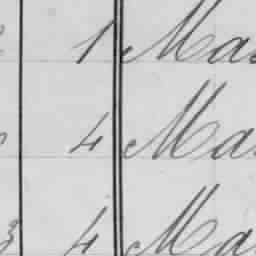 1 Ma
4 Ma
3 4 Ma